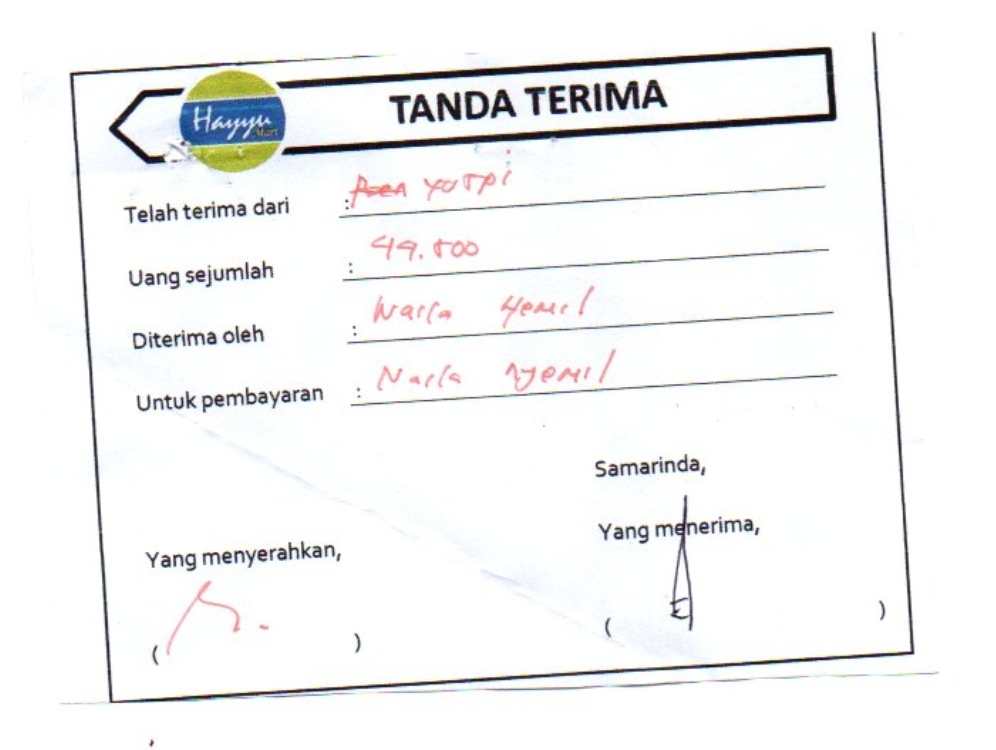 Hayyu
Mart
TANDA TERIMA
Telah terima dari : Yospi
Uang sejumlah : 49.500
Diterima oleh : Naila Yemil
Untuk pembayaran : Naila Nyemil
Samarinda,
Yang menyerahkan,
Yang menerima,
( )
( )